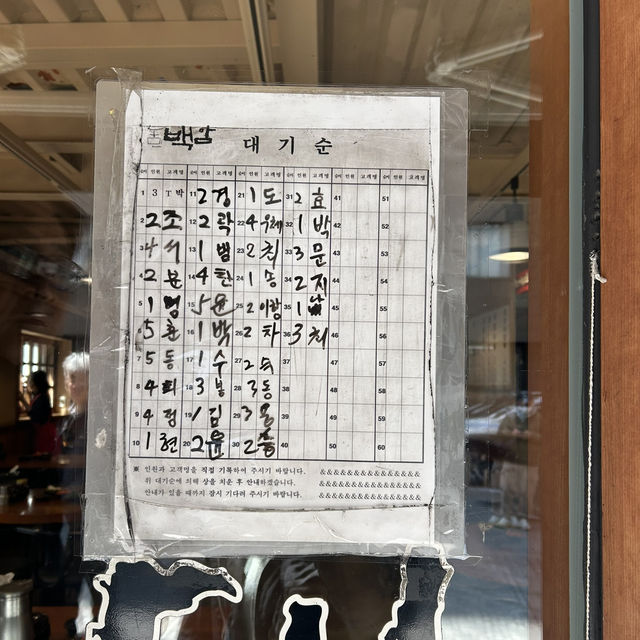 백암 대기순
순번 인원 고객명 순번 인원 고객명 순번 인원 고객명 순번 인원 고객명 순번 인원 고객명 순번 인원 고객명
1 3 T 박 11 2 경 21 1 도 31 2 효 41 51
2 2 조 12 2 곽 22 4 우체 32 1 박 42 52
3 4 서 13 1 뱀 23 2 최 33 3 문 43 53
4 2 분 14 4 한 24 1 송 34 2 지 44 54
5 1 15 5 윤 25 2 이랑 35 1 45 55
6 5 환 16 1 박 26 2 차 36 3 최 46 56
7 5 동 17 1 수 27 2 37 47 57
8 4 18 3 봉 28 3 동 38 48 58
9 4 정 19 1 김 29 3 용 39 49 59
10 1 현 20 2 윤 30 2 40 50 60
※ 인원과 고객명을 직접 기록하여 주시기 바랍니다. &&&&&&&&&&&&&&&&
위 대기순에 의해 상을 치운 후 안내하겠습니다. &&&&&&&&&&&&&&&&
안내가 있을 때까지 잠시 기다려 주시기 바랍니다. &&&&&&&&&&&&&&&&